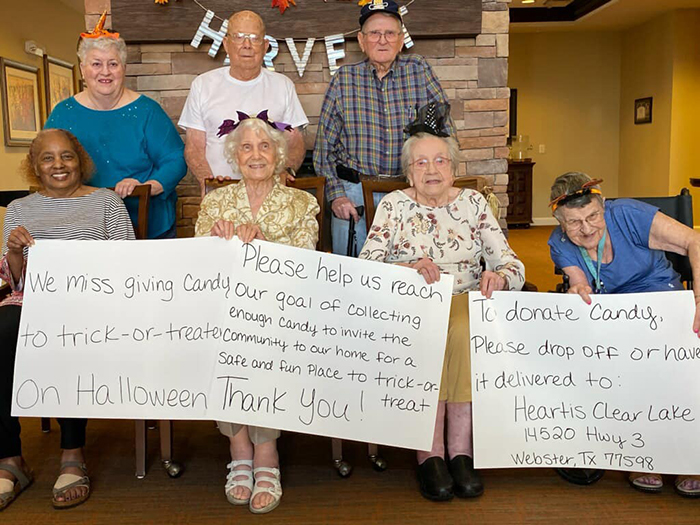 HARVE
We miss giving Candy
to trick-or-treate
On Halloween
Please help us reach
Our goal of collecting
enough candy to invite the
Community to our home for a
Safe and fun Place to trick-or-
treat
Thank You!
To donate Candy,
Please drop off or have
it delivered to:
Heartis Clear Lake
14520 Hwy 3
Webster, Tx 77598